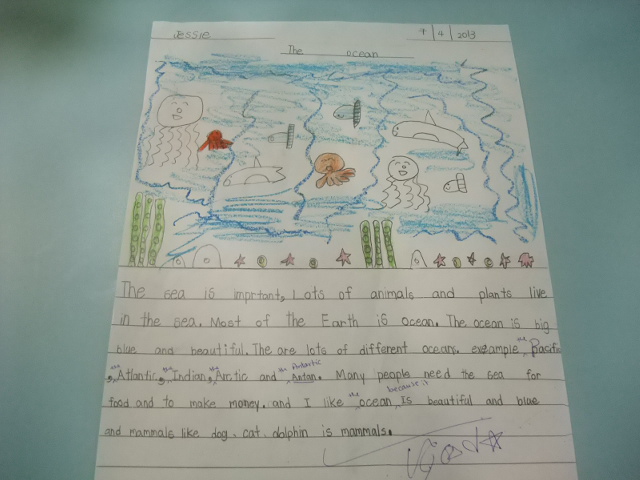 Jessie 9 4 2013
The ocean
The sea is imprtant, Lots of animals and plants live
in the sea. Most of the Earth is ocean. The ocean is big
blue and beautiful. The are lots of different ocean. example the Pacific
the Atlantic, the Indian, the Arctic and the Antarctic Antan. Many people need the sea for
food and to make money. and I like the ocean because it Is beautiful and blue
and mammals like dog. cat. dolphin is mammals.